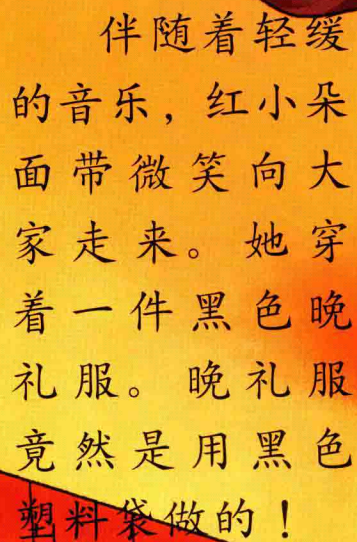 伴随着轻缓
的音乐，红小朵
面带微笑向大
家走来。她穿
着一件黑色晚
礼服。晚礼服
竟然是用黑色
塑料袋做的！